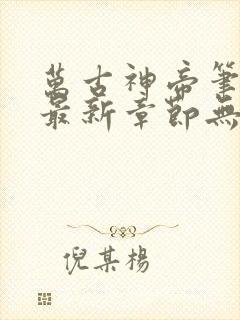 萬古神帝筆
最新章節無
倪某楊